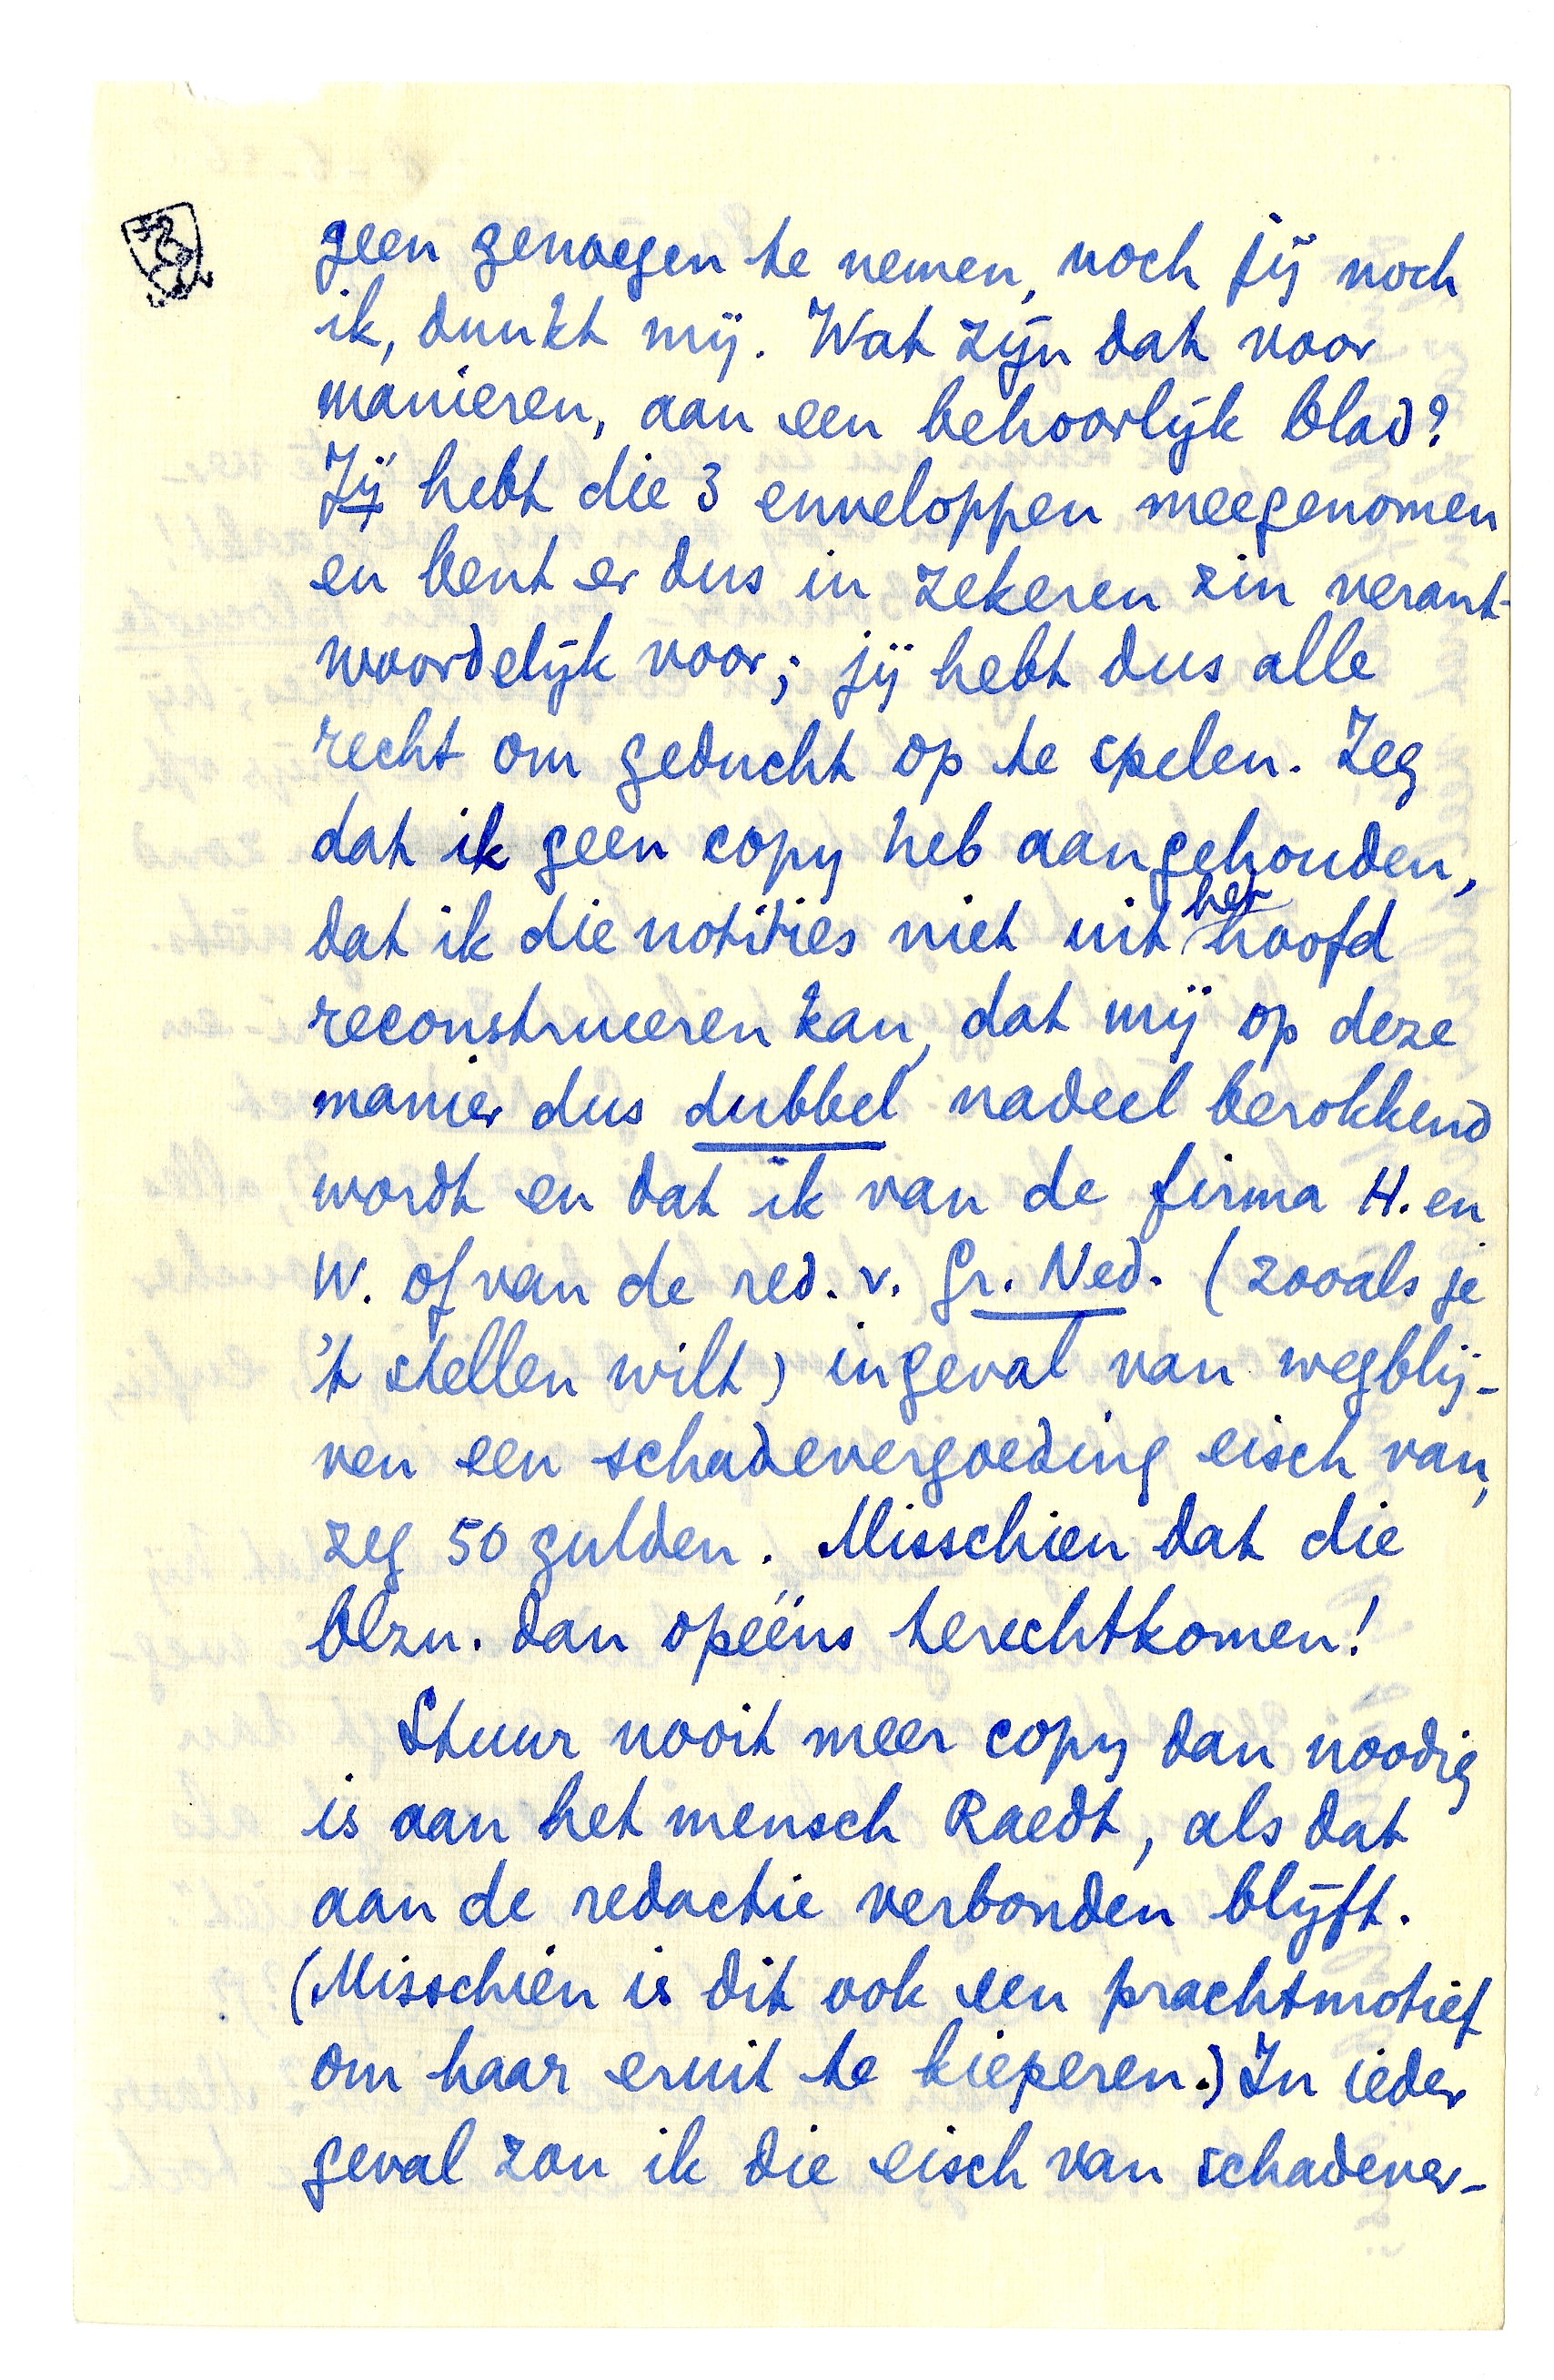 geen genoegen te nemen, noch jij noch
ik, dunkt mij. Wat zijn dat voor
manieren, aan een behoorlijk blad?
Jij hebt die 3 enveloppen meegenomen
en bent er dus in zekeren zin verant-
woordelijk voor; jij hebt dus alle
recht om geducht op te spelen. Zeg
dat ik geen copy heb aangehouden,
dat ik die notities niet uit het hoofd
reconstrueeren kan, dat mij op deze
manier dus dubbel nadeel berokkend
wordt en dat ik van de firma H. en
W. of van de red. v. Gr. Ned. (zooals je
't stellen wilt) ingeval van wegblij-
ven een schadevergoeding eisch van,
zeg 50 gulden. Misschien dat die
blzn. dan opééns terechtkomen!
Stuur nooit meer copy dan noodig
is aan het mensch Raedt, als dat
aan de redactie verbonden blijft.
(Misschien is dit ook een prachtmotief
om haar eruit te kieperen.) In ieder
geval zou ik die eisch van schadever-